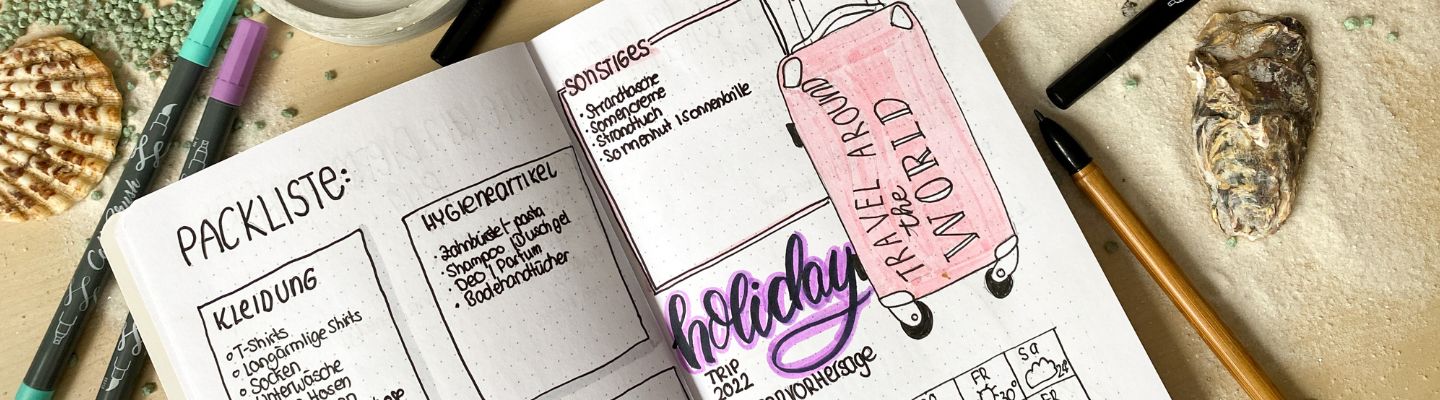 PACKLISTE:
KLEIDUNG
T-Shirts
Langärmlige Shirts
Socken
Unterwäsche
Hosen
HYGIENEARTIKEL
Zahnbürste + pasta
Shampoo | Duschgel
Deo | Parfum
Badehandtücher
SONSTIGES
Strandtasche
Sonnencreme
Strandtuch
Sonnenhut | Sonnenbrille
TRAVEL AROUND
the
WORLD
holiday
TRIP
2022
vorhersage
FR
30°
SA
24°
FR